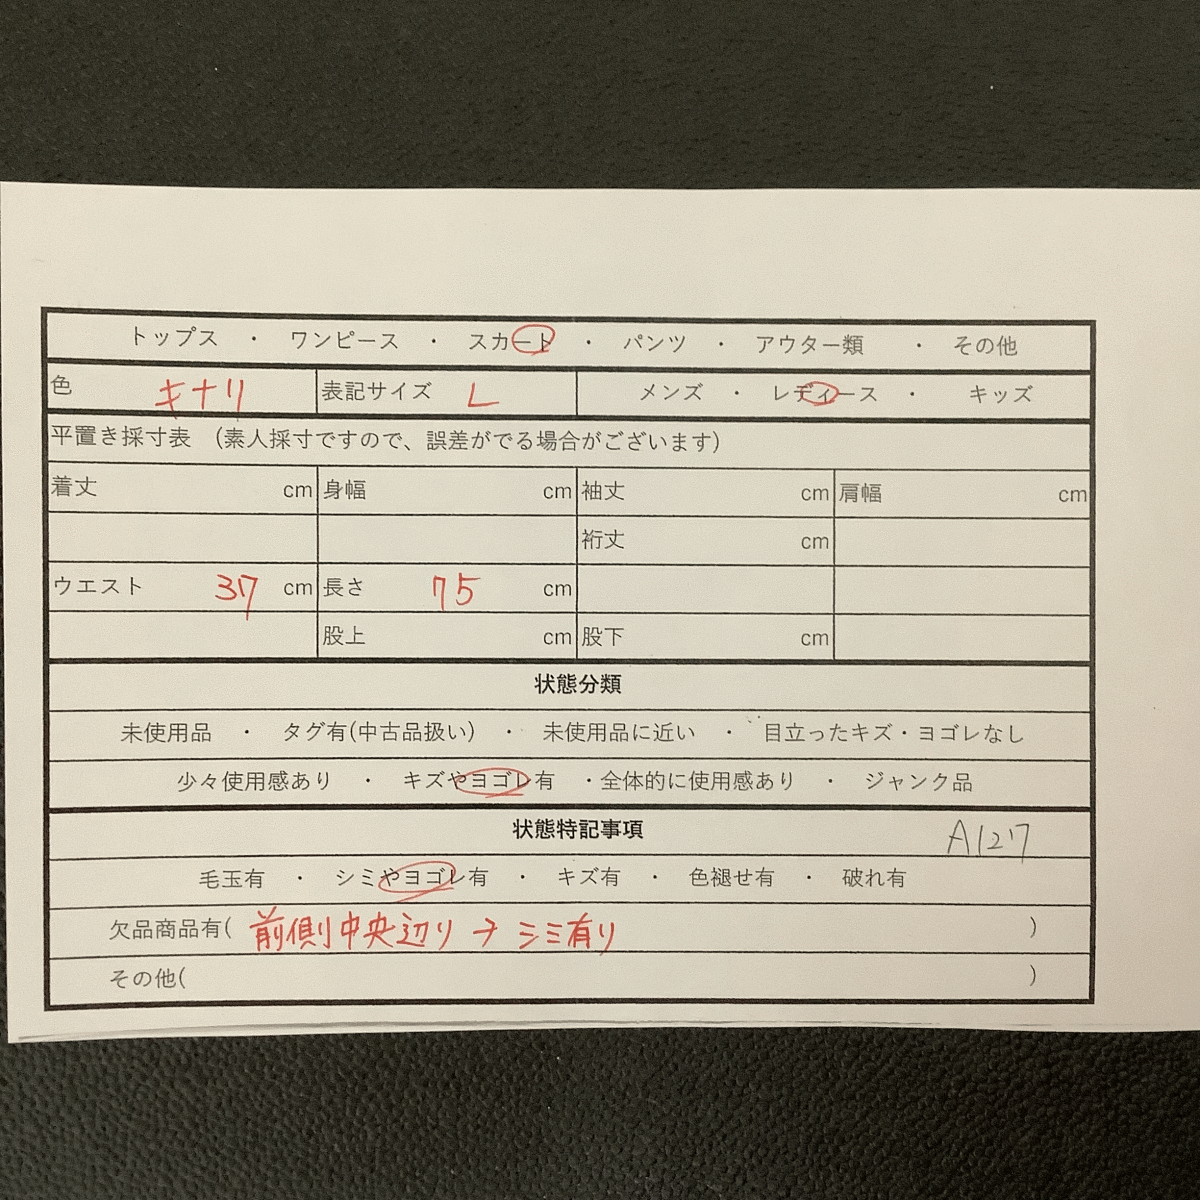 トップス ・ ワンピース ・ スカート ・ パンツ ・ アウター類 ・ その他
色 キナリ 表記サイズ L メンズ ・ レディース ・ キッズ
平置き採寸表 (素人採寸ですので、誤差がでる場合がございます)
着丈 cm 身幅 cm 袖丈 cm 肩幅 cm
裄丈 cm
ウエスト 37 cm 長さ 75 cm
股上 cm 股下 cm
状態分類
未使用品 ・ タグ有(中古品扱い) ・ 未使用品に近い ・ 目立ったキズ・ヨゴレなし
少々使用感あり ・ キズやヨゴレ有 ・全体的に使用感あり ・ ジャンク品
状態特記事項 A127
毛玉有 ・ シミやヨゴレ有 ・ キズ有 ・ 色褪せ有 ・ 破れ有
欠品商品有( 前側中央辺り → シミ有り )
その他( )